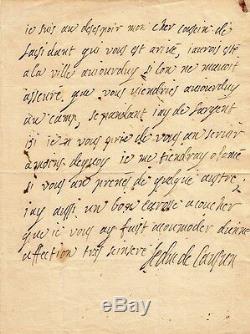 ie suis au desespoir mon cher cousin de
lacsidant qui vous est arivé, iaurois esté
a la ville auiourduy si lon ne mavoit
asseuré que vous viendriés auiourduy
au camp, sepandant iay de largent
isi ie vous prie de vous an servir
ie me tiendray
si vous an prenés de quelque austre,
iay aussi un bon carosse a coucher
que ie vous ay fait acomoder dunne
affection tres sincere le duc de Lausun
ebay